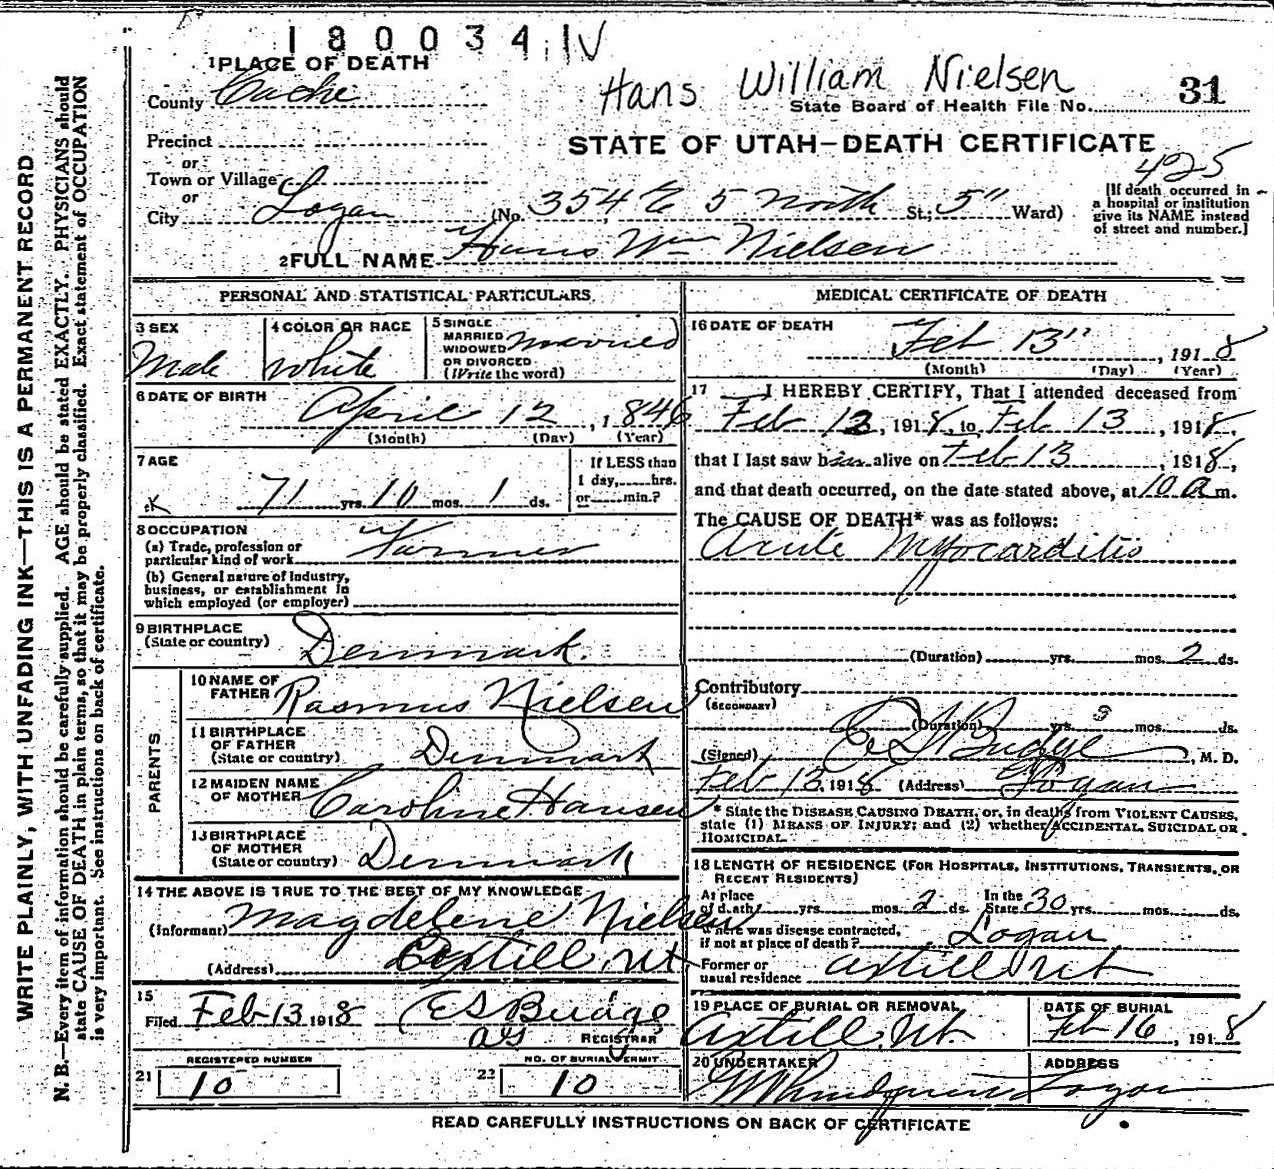 1800341V
Hans William Nielsen
State Board of Health File No. 31
STATE OF UTAH—DEATH CERTIFICATE
425
1 PLACE OF DEATH
County Cache
Precinct
or
Town or Village
or
City Logan (No. 354 E 5 North St.; 5" Ward)
[If death occurred in a hospital or institution give its NAME instead of street and number.]
2 FULL NAME Hans Wm Nielsen
PERSONAL AND STATISTICAL PARTICULARS
3 SEX Male
4 COLOR OR RACE white
5 SINGLE MARRIED WIDOWED OR DIVORCED (Write the word) married
6 DATE OF BIRTH April 12, 1846
(Month) (Day) (Year)
7 AGE 71 yrs. 10 mos. 1 ds.
If LESS than 1 day, hrs. or min.?
8 OCCUPATION
(a) Trade, profession or particular kind of work Farmer
(b) General nature of industry, business, or establishment in which employed (or employer)
9 BIRTHPLACE (State or country) Denmark.
PARENTS
10 NAME OF FATHER Rasmus Nielsen
11 BIRTHPLACE OF FATHER (State or country) Denmark
12 MAIDEN NAME OF MOTHER Caroline Hansen
13 BIRTHPLACE OF MOTHER (State or country) Denmark
14 THE ABOVE IS TRUE TO THE BEST OF MY KNOWLEDGE
(Informant) Magdelene Nielsen
(Address) Axtill, Ut
15 Filed Feb 13 1918 E S Budge
REGISTRAR
21 REGISTERED NUMBER 10
22 NO. OF BURIAL PERMIT 10
MEDICAL CERTIFICATE OF DEATH
16 DATE OF DEATH Feb 13", 1918
(Month) (Day) (Year)
17 I HEREBY CERTIFY, That I attended deceased from
Feb 12, 1918, to Feb 13, 1918,
that I last saw him alive on Feb 13, 1918,
and that death occurred, on the date stated above, at 10 a m.
The CAUSE OF DEATH* was as follows:
Acute Myocarditis
(Duration) yrs. mos. 2 ds.
Contributory (SECONDARY)
(Duration) yrs. mos. ds.
(Signed) E S Budge M. D.
Feb 13, 1918 (Address) Logan
* State the DISEASE CAUSING DEATH, or, in deaths from VIOLENT CAUSES, state (1) MEANS OF INJURY; and (2) whether ACCIDENTAL, SUICIDAL OR HOMICIDAL.
18 LENGTH OF RESIDENCE (FOR HOSPITALS, INSTITUTIONS, TRANSIENTS, OR RECENT RESIDENTS)
At place of death yrs. mos. 2 ds. In the State 30 yrs. mos. ds.
Where was disease contracted, if not at place of death? Logan
Former or usual residence Axtill Ut
19 PLACE OF BURIAL OR REMOVAL Axtill, Ut.
DATE OF BURIAL Feb 16, 1918
20 UNDERTAKER
ADDRESS Logan
READ CAREFULLY INSTRUCTIONS ON BACK OF CERTIFICATE
WRITE PLAINLY, WITH UNFADING INK—THIS IS A PERMANENT RECORD
N. B.—Every item of information should be carefully supplied. AGE should be stated EXACTLY. PHYSICIANS should
state CAUSE OF DEATH in plain terms, so that it may be properly classified. Exact statement of OCCUPATION
is very important. See instructions on back of certificate.